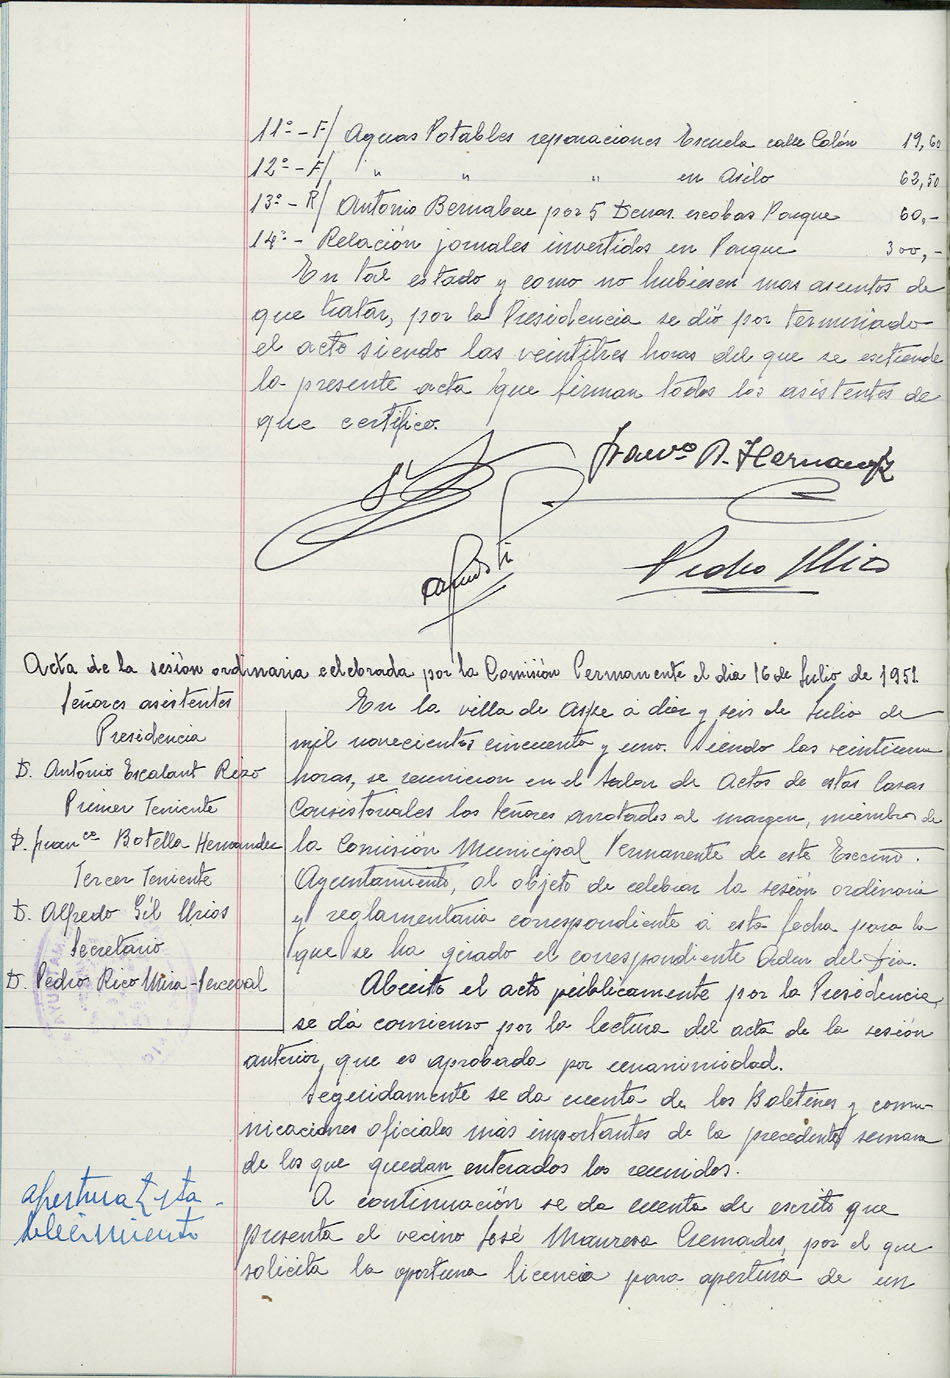 11º - F/ Aguas Potables reparaciones Escuela calle Colón 19,60
12º - F/ " " " en Asilo 62,50
13º - R/ Antonio Bernabeu por 5 Dcnas. escobas Parque 60,-
14º - Relación jornales invertidos en Parque 300,-
En tal estado y como no hubiesen mas asuntos de
que tratar, por la Presidencia se dió por terminado
el acto siendo las veintitres horas del que se extiende
la presente acta que firman todos los asistentes de
que certifico.
Franco B. Hernandez
Pedro Rico
Acta de la sesión ordinaria celebrada por la Comisión Permanente el dia 16 de Julio de 1951
Señores asistentes
Presidencia
D. Antonio Escalant Rizo
Primer Teniente
D. Franco Botella Hernandez
Tercer Teniente
D. Alfredo Gil Urios
Secretario
D. Pedro Rico Mira-Perceval
En la villa de Aspe a diez y seis de Julio de
mil novecientos cincuenta y uno. Siendo las veintiuna
horas, se reunieron en el salon de Actos de estas Casas
Consistoriales los señores anotados al margen, miembros de
la Comisión Municipal Permanente de este Excmo.
Ayuntamiento, al objeto de celebrar la sesión ordinaria
y reglamentaria correspondiente a esta fecha para la
que se ha girado el correspondiente Orden del Dia.
Abierto el acto públicamente por la Presidencia,
se dá comienzo por la lectura del acta de la sesión
anterior, que es aprobada por unanimidad.
Seguidamente se da cuenta de los Boletines y comu-
nicaciones oficiales mas importantes de la precedente semana
de los que quedan enterados los reunidos.
apertura Esta-
blecimiento
A continuación se da cuenta de escrito que
presenta el vecino José Maureso Cremades, por el que
solicita la oportuna licencia para apertura de un